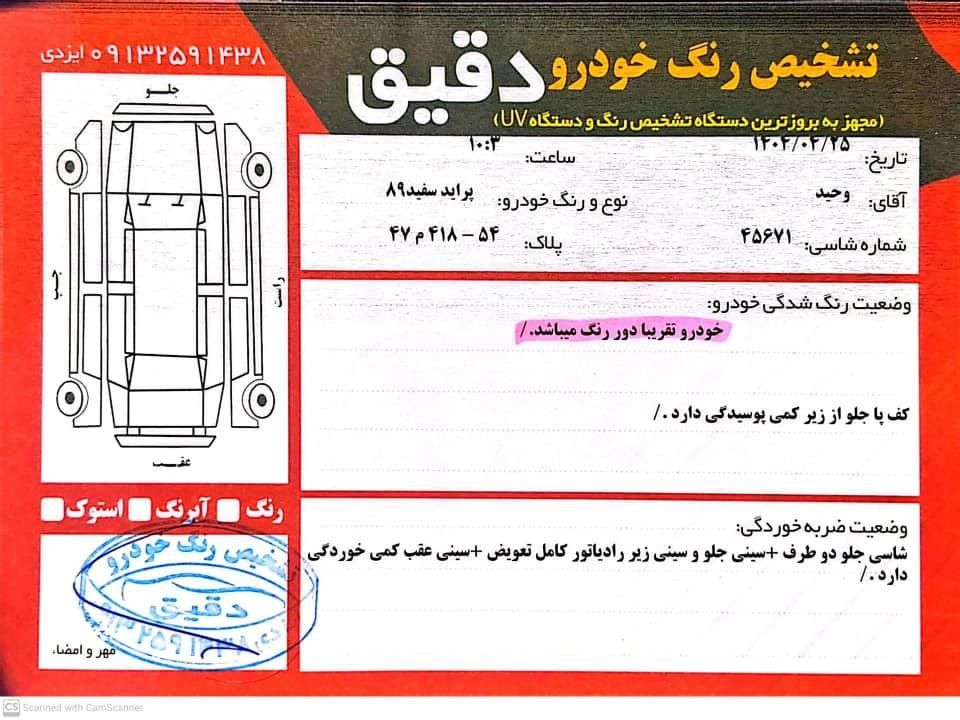 تشخیص رنگ خودرو دقیق
(مجهز به بروزترین دستگاه تشخیص رنگ و دستگاه UV)
۰۹۱۳۲۵۹۱۴۳۸ ایزدی
تاریخ: ۱۴۰۴/۰۴/۲۵ ساعت: ۱۰:۳
آقای: وحید نوع و رنگ خودرو: پراید سفید۸۹
شماره شاسی: ۴۵۶۷۱ پلاک: ۵۴ – ۴۱۸ م ۴۷
وضعیت رنگ شدگی خودرو:
خودرو تقریبا دور رنگ میباشد./
کف پا جلو از زیر کمی پوسیدگی دارد./
وضعیت ضربه خوردگی:
شاسی جلو دو طرف +سینی جلو و سینی زیر رادیاتور کامل تعویض +سینی عقب کمی خوردگی
دارد./
جلو
راست
چپ
عقب
رنگ آبرنگ استوک
تشخیص رنگ خودرو
دقیق
مهر و امضاء
CS Scanned with CamScanner